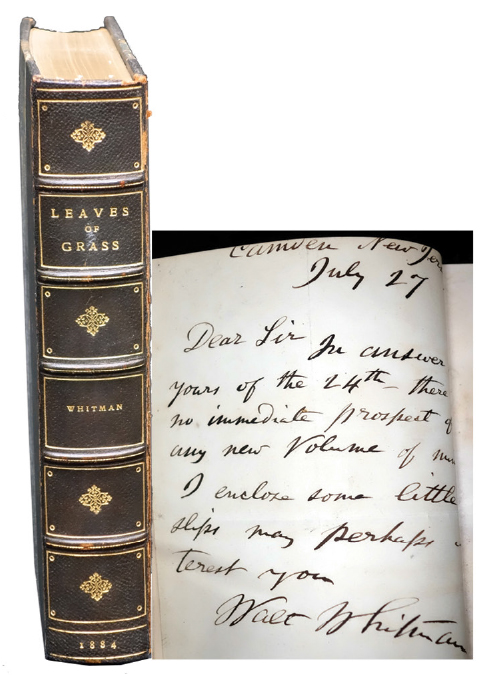 LEAVES
OF
GRASS
WHITMAN
1884
Camden New Jer
July 27
Dear Sir In answer
yours of the 24th there
no immediate prospect of
any new Volume of
I enclose some little
slips may perhaps
terest you
Walt Whitman